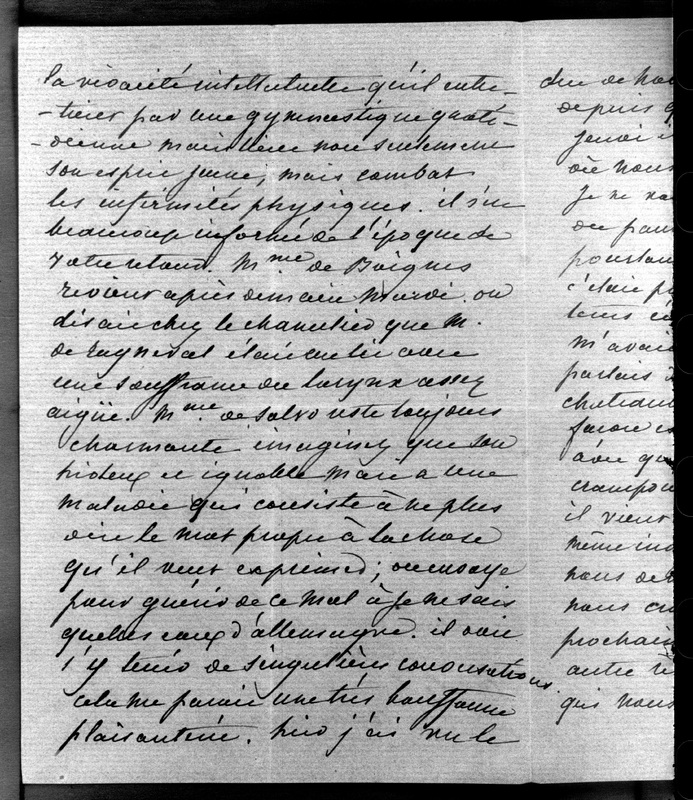 la vivacité intellectuelle qu'il entre-
-tient par une gymnastique quoti-
-dienne maintient non seulement
son esprit jeune, mais combat
les infirmités physiques. il s'est
beaucoup informé de l'époque de
votre retour. Mme de Boigne
revient après demain Mardi. on
disait chez le chancelier que M.
de Rayneval était au lit avec
une souffrance du larynx assez
aigüe. Mme de Salvo reste toujours
charmante imaginez que son
hideux et ignoble Mari a une
maladie qui consiste à ne plus
dire le mot propre à la chose
qu'il veut exprimer; on envoye
pour guérir de ce mal à je ne sais
quelles eaux d'allemagne. il doit
s'y tenir de singulières conversations
cela me parait une très bouffonne
plaisanterie. hier j'ai vu le
duc de
depuis
où nous
je ne
ou
pourtant
c'était
tems
m'avait
parlais
chateau
avec
il vient
même
nous
nous
prochain
autre
qui nous